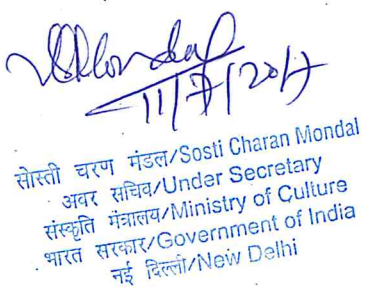 11/7/2017
सोस्ती चरण मंडल/Sosti Charan Mondal
अवर सचिव/Under Secretary
संस्कृति मंत्रालय/Ministry of Culture
भारत सरकार/Government of India
नई दिल्ली/New Delhi